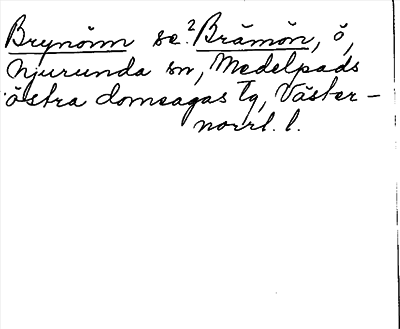 Brynönn se ²Brämön, ö,
Njurunda sn, Medelpads
östra domsagas tg, Väster-
norrl. l.